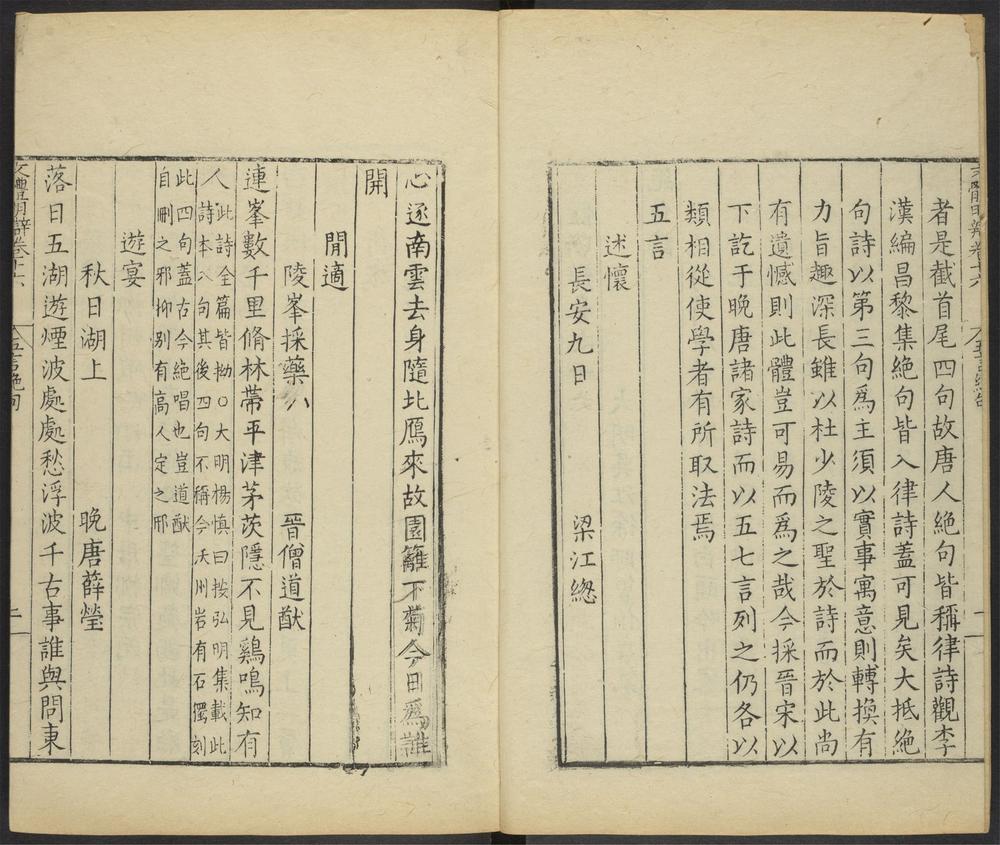 文體明辯卷十六
五言絕句
一
者是截首尾四句故唐人絕句皆稱律詩觀李
漢編昌黎集絕句皆入律詩蓋可見矣大抵絕
句詩以第三句爲主須以實事寓意則轉換有
力旨趣深長雖以杜少陵之聖於詩而於此尚
有遺憾則此體豈可易而爲之哉今採晉宋以
下訖于晚唐諸家詩而以五七言列之仍各以
類相從使學者有所取法焉
五言
述懷
長安九日 梁江緫
心逐南雲去身隨北鴈來故園籬下菊今日爲誰
開
閒適
陵峯採藥 晉僧道猷
連峯數千里脩林帶平津茅茨隱不見鷄鳴知有
人此詩全篇皆拗○大明楊慎曰按弘明集載此
詩本八句其後四句不稱今沃州岩有石獨刻
此四句蓋古今絕唱也豈道猷
自刪之邪抑別有高人定之邪
遊宴
秋日湖上 晚唐薛瑩
落日五湖遊煙波處處愁浮波千古事誰與問東
文體明辯卷十六
五言絕句
二